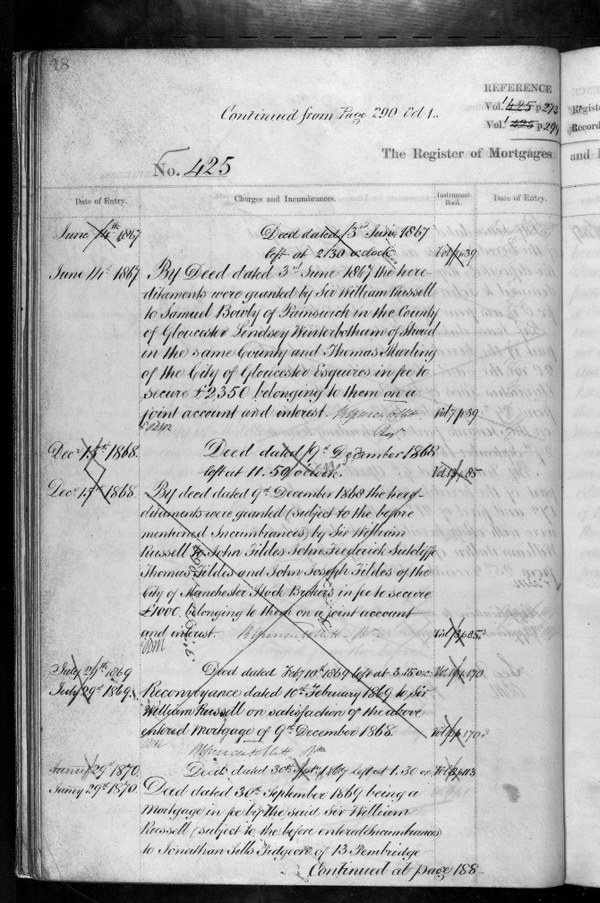 18
REFERENCE
Continued from Page 290 Vol 1.
Vol. 1 425 p 273
Vol. 1 425 p 294
Register
Record
No. 425
The Register of Mortgages
and
Date of Entry.
Charges and Incumbrances.
Instrument Book.
Date of Entry.
June 14th 1867
Deed dated 3rd June 1867
left at 2.30 o'clock
Vol 7 p 39
June 14th 1867
By Deed dated 3rd June 1867 the here-
ditaments were granted by Sir William Russell
to Samuel Bowly of Painswick in the County
of Gloucester Lindsey Winterbotham of Stroud
in the same County and Thomas Marling
of the City of Gloucester Esquires in fee to
secure £2350 belonging to them on a
joint account and interest.
Vol 7 p 39
Decr 15th 1868.
Deed dated 9th December 1868
left at 11.50 o'clock.
Vol 13 p 85
Decr 15th 1868
By deed dated 9th December 1868 the here-
ditaments were granted (subject to the before
mentioned Incumbrances) by Sir William
Russell to John Fildes John Frederick Sutcliffe
Thomas Fildes and John Joseph Fildes of the
City of Manchester Stock Brokers in fee to secure
£1000 belonging to them on a joint account
and interest.
Vol 13 p 85
July 29th 1869
Deed dated Feby 10th 1869 left at 3.45
p 170
July 29th 1869
Reconveyance dated 10th February 1869 to Sir
William Russell on satisfaction of the above
entered Mortgage of 9th December 1868.
p 170
29th 1870
Deed dated 30th Septr 1869 left at 1.30
p 113
29th 1870.
Deed dated 30th September 1869 being a
Mortgage in fee by the said Sir William
Russell (subject to the before entered Incumbrances)
to Jonathan Sills Pidgeon of 13 Pembridge
Continued at page 188